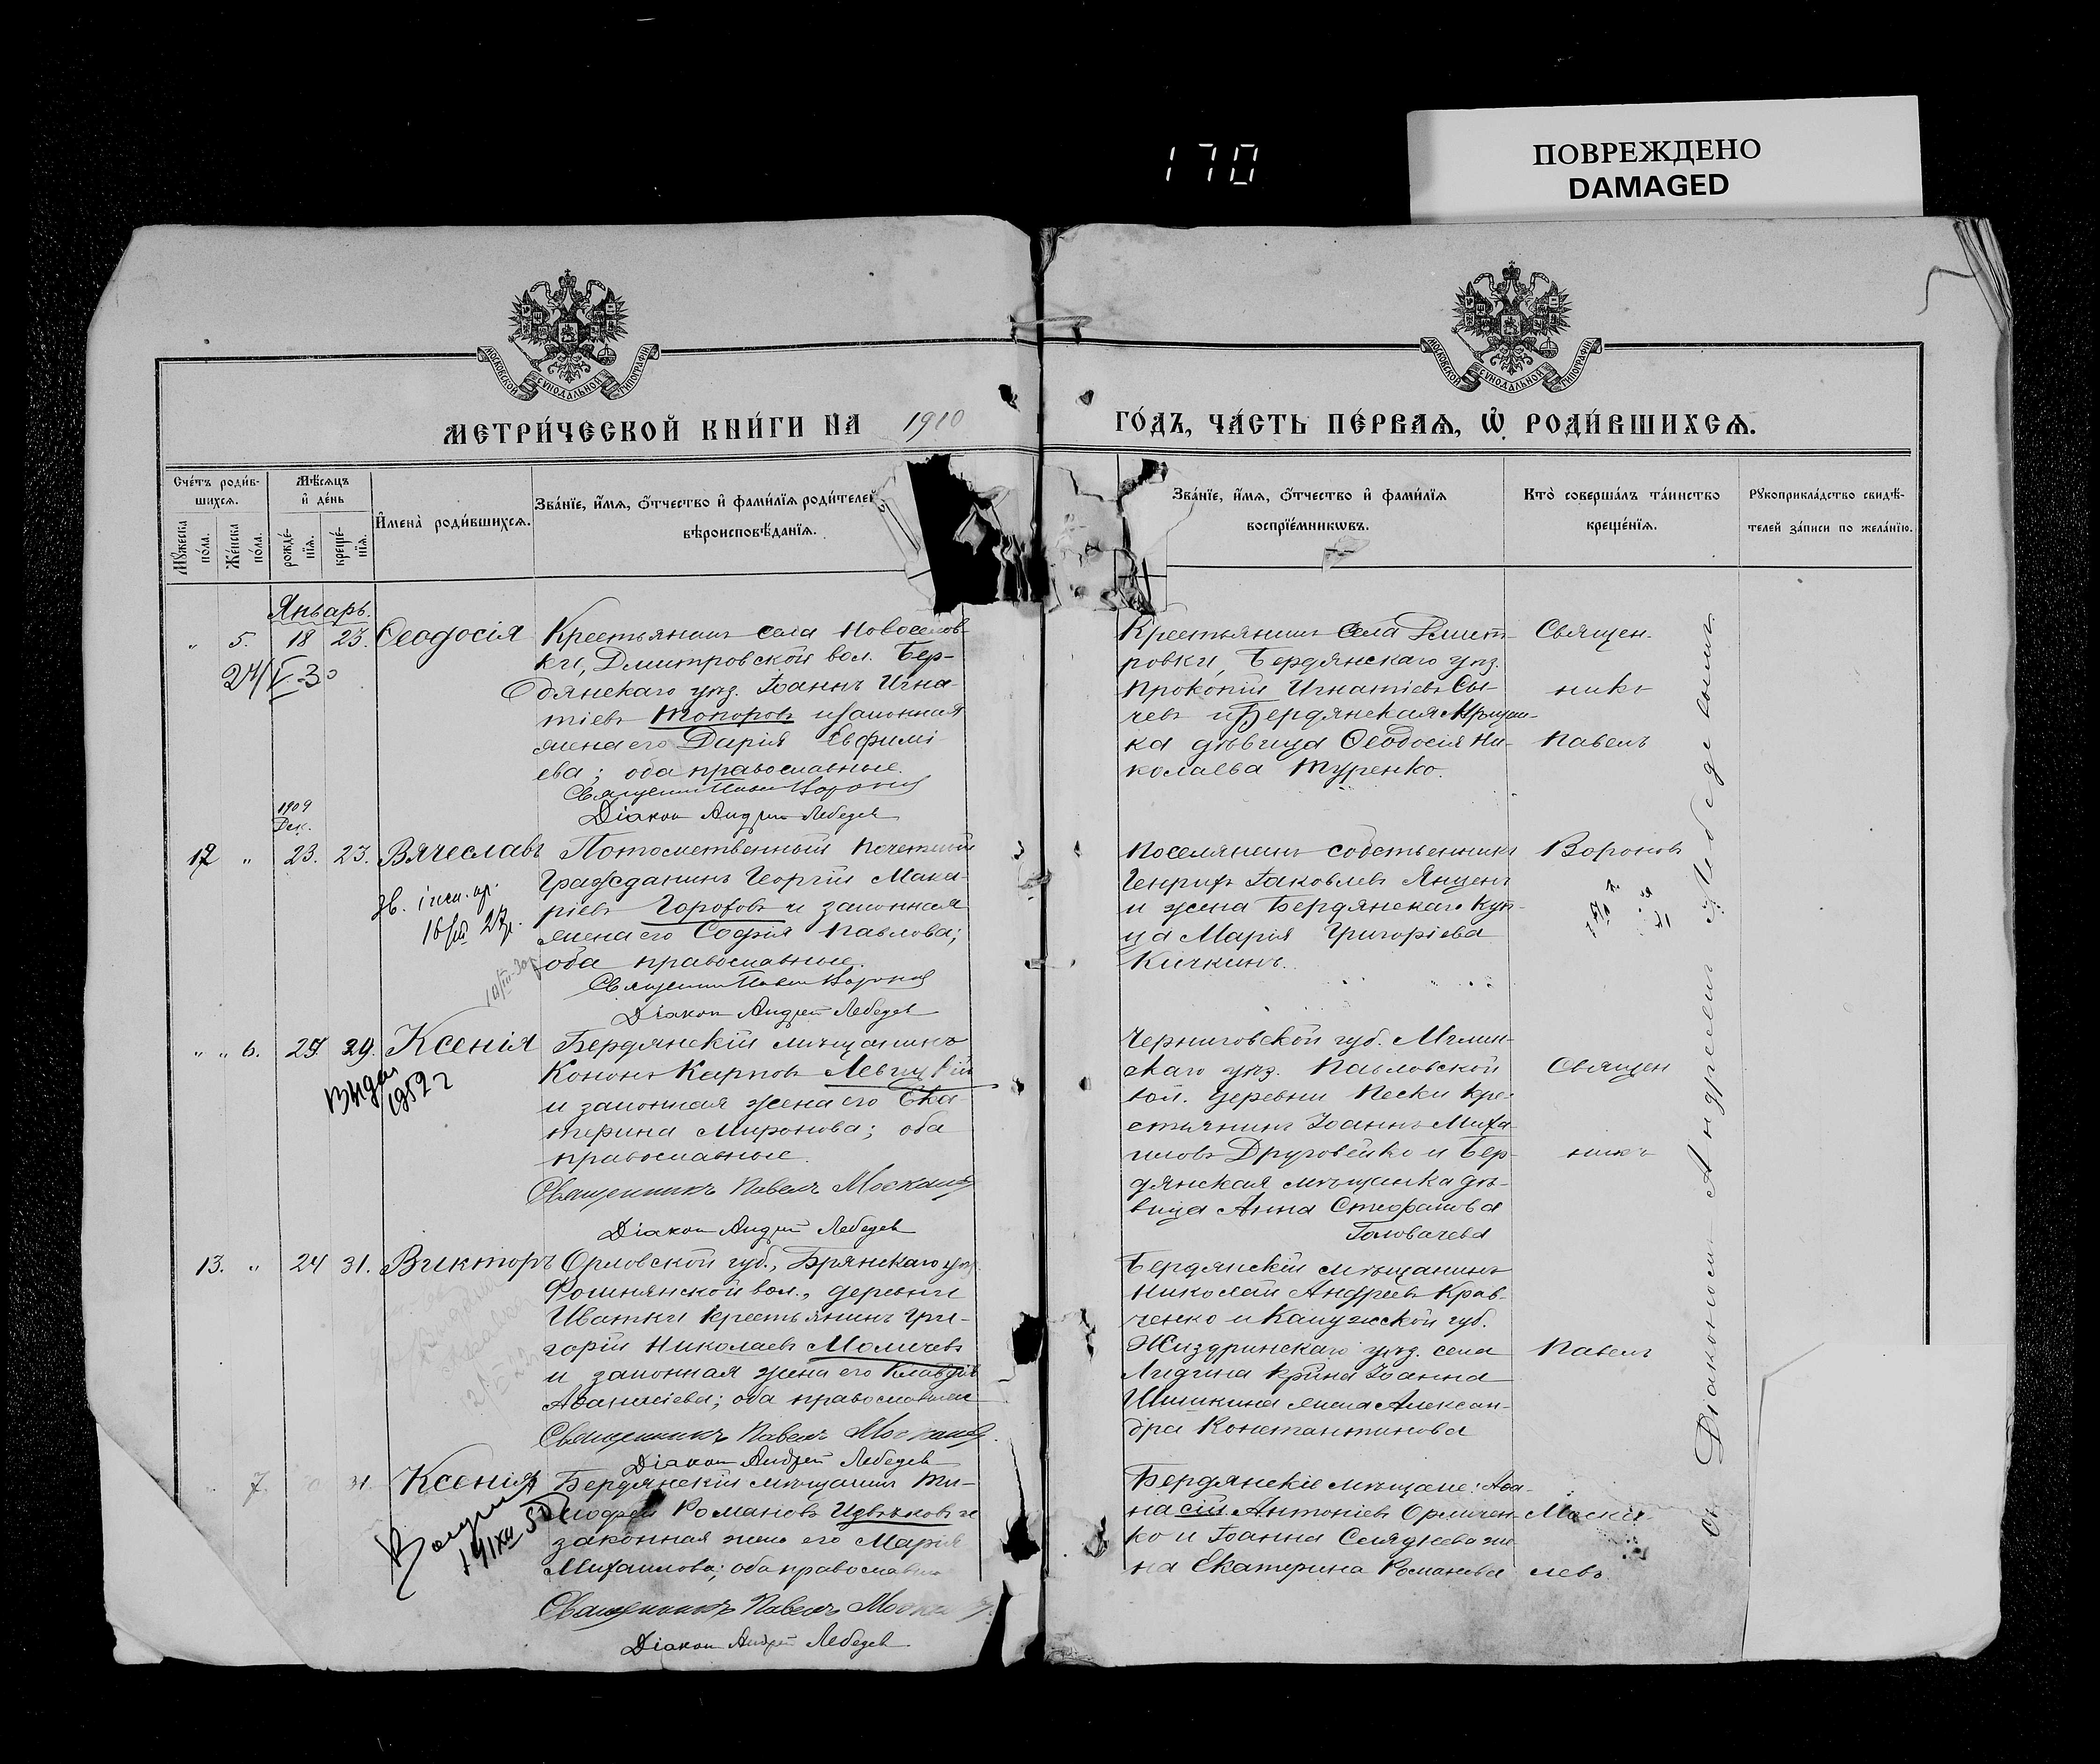 170
ПОВРЕЖДЕНО
DAMAGED
МОСКОВСКОЙ СУНОДАЛЬНОЙ ТИПОГРАФІИ
МОСКОВСКОЙ СУНОДАЛЬНОЙ ТИПОГРАФІИ
МЕТРИ́ЧЕСКОЙ КНИ́ГИ НА 1910
ГО́ДЪ, ЧА́СТЬ ПЕ́РВАѦ, Ѡ РОДИ́ВШИХСѦ.
Сче́тъ роди́в-
шихсѧ.
Мꙋжеска по́ла.
Же́нска по́ла.
Мѣ́сѧцъ
и҆ де́нь
рожде́-
нїѧ.
креще́-
нїѧ.
И҆мена̀ роди́вшихсѧ.
Зва́нїе, и҆́мѧ, ѻ҆́тчество и҆ фами́лїѧ роди́телей
вѣроисповѣ́данїѧ.
Зва́нїе, и҆́мѧ, ѻ҆́тчество и҆ фами́лїѧ
воспрїе́мникѡвъ.
Кто̀ соверша́лъ та́инство
креще́нїѧ.
Рꙋкоприкла́дство свидѣ́-
телей за́писи по жела́нїю.
Январь.
„ 5. 18 23. Ѳеодосія
Крестьянинъ села Новоселов-
ки, Дмитровской вол. Бер-
дянскаго уѣз. Іоаннъ Игна-
тіевъ Топоровъ и законная
жена его Дарія Евфимі
ева; оба православные.
Діакон Андрей Лебедев
Крестьянинъ села Дмит-
ровки, Бердянскаго уѣз.
Прокопій Игнатіевъ Сы-
чевъ и Бердянская мѣщан-
ка дѣвица Ѳеодосія Ни-
колаева Туренко.
Священ-
никъ
Павелъ
1909
Дек.
12 „ 23. 23. Вячеславъ
Потомственный почетный
Гражданинъ Георгій Мака-
ріевъ Гороховъ и законная
жена его Софія Павлова;
оба православные.
Діакон Андрей Лебедев
Поселянинъ собственникъ
Генрихъ Іаковлевъ Янценъ
и жена Бердянскаго куп-
ца Марія Григоріева
Кичкинъ.
Вороновъ
„ „ 6. 29. Ксенія
Выдан
1952 г
Бердянскій мѣщанинъ
Кононъ Карповъ Левицкій
и законная жена его Ека
терина Миронова; оба
православные.
Священникъ Павелъ Москалев
Діакон Андрей Лебедев
Черниговской губ. Мглин-
скаго уѣз. Павловской
вол. деревни Пески кре-
стьянинъ Іоаннъ Миха-
иловъ Друговейко и Бер-
дянская мѣщанка дѣ-
вица Анна Стефанова
Головачева
Священ
никъ
13. „ 24 31. Викторъ
Орловской губ., Брянскаго уѣз.
вол., деревни
крестьянинъ Гри-
горій Николаевъ Моличевъ
и законная жена его Клавдія
Аѳанасіева; оба православные
Священникъ Павелъ Москалев
Діакон Андрей Лебедев
Бердянскій мѣщанинъ
Николай Андреевъ Крав-
ченко и Калужской губ.
Жиздринскаго уѣз. села
Іоанна
Шишкина жена Алексан-
дра Константинова
Павелъ
7. 31. Ксенія
Бердянскій мѣщанинъ Ти-
моѳей Романовъ и
законная жена его Марія
Михаилова; оба православные
Священникъ Павелъ
Діакон Андрей Лебедев
Бердянскіе мѣщане: Аѳа-
насій Антоніевъ
ко и Іоанна же
на Екатерина Романова
Моска-
левъ
съ Діакономъ Андреемъ Лебедевымъ